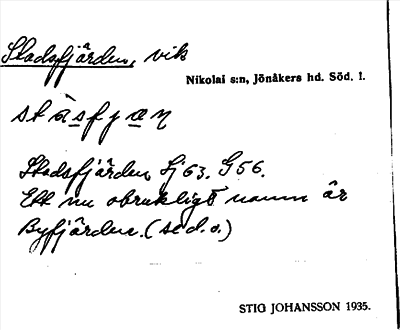 Stadsfjärden, vik
Nikolai s:n, Jönåkers hd. Söd. l.
stàsfjæn
Stadsfjärden Sj 63. G56.
Ett nu obrukligt namn är
Byfjärden. (se d. o.)
STIG JOHANSSON 1935.